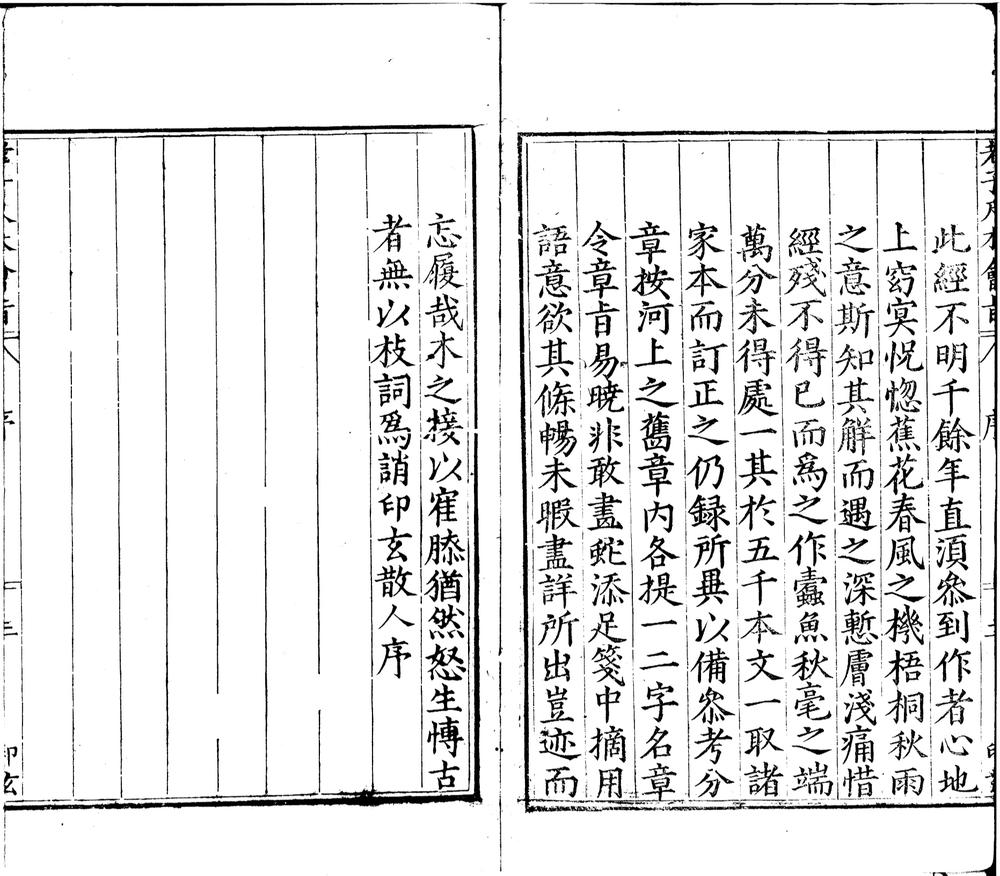 此經不明千餘年直湏叅到作者心地
上窈㝠怳惚蕉花春風之機梧桐秋雨
之意斯知其解而遇之深慙膚淺痛惜
經殘不得已而爲之作蠧魚秋毫之端
萬分未得處一其於五千本文一取諸
家本而訂正之仍録所異以備叅考分
章按河上之舊章内各提一二字名章
令章㫖易曉非敢畫蛇添足箋中摘用
語意欲其條暢未暇盡詳所出豈迹而
忘履哉木之接以㝛膝猶然怒生愽古
者無以枝詞爲誚印玄散人序
序
印玄